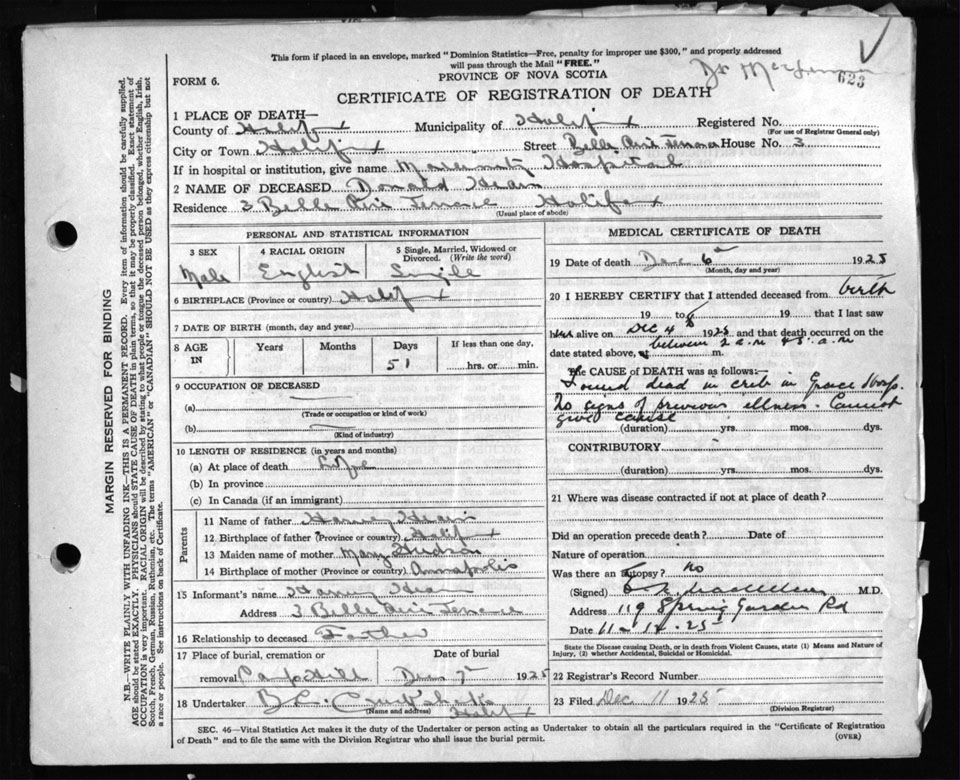 This form if placed in an envelope, marked "Dominion Statistics—Free, penalty for improper use $300," and properly addressed
will pass through the Mail "FREE."
FORM 6.
PROVINCE OF NOVA SCOTIA
623
CERTIFICATE OF REGISTRATION OF DEATH
1 PLACE OF DEATH—
County of Halifax Municipality of Halifax Registered No.
(For use of Registrar General only)
City or Town Halifax Street Belle Aire Terrace House No. 3
If in hospital or institution, give name Maternity Hospital
2 NAME OF DECEASED Donald Hearn
Residence 3 Belle Aire Terrace Halifax
(Usual place of abode)
PERSONAL AND STATISTICAL INFORMATION
3 SEX 4 RACIAL ORIGIN 5 Single, Married, Widowed or
Divorced. (Write the word)
Male English Single
6 BIRTHPLACE (Province or country) Halifax
7 DATE OF BIRTH (month, day and year)
8 AGE IN Years Months Days If less than one day,
51 hrs. or min.
9 OCCUPATION OF DECEASED
(a)
(Trade or occupation or kind of work)
(b)
(Kind of industry)
10 LENGTH OF RESIDENCE (in years and months)
(a) At place of death Life
(b) In province
(c) In Canada (if an immigrant)
Parents
11 Name of father Harvey Hearn
12 Birthplace of father (Province or country) Halifax
13 Maiden name of mother Mary Hudson
14 Birthplace of mother (Province or country) Annapolis
15 Informant's name Harvey Hearn
Address 3 Belle Aire Terrace
16 Relationship to deceased Father
17 Place of burial, cremation or Date of burial
removal Camp Hill Dec 7th 1925
18 Undertaker
(Name and address) Halifax
MEDICAL CERTIFICATE OF DEATH
19 Date of death Dec 6th 1925
(Month, day and year)
20 I HEREBY CERTIFY that I attended deceased from birth
19 to 19 that I last saw
him alive on Dec 4th 1925 and that death occurred on the
between 2 a.m. & 5 a.m
date stated above, at m.
The CAUSE of DEATH was as follows:—
Found dead in crib in Grace Hosp.
No signs of previous illness. Cannot
give cause
(duration) yrs. mos. dys.
CONTRIBUTORY
(duration) yrs. mos. dys.
21 Where was disease contracted if not at place of death?
Did an operation precede death? Date of
Nature of operation
Was there an Autopsy? No
(Signed) M.D.
Address 119 Spring Garden Rd
Date
State the Disease causing Death, or in death from Violent Causes, state (1) Means and Nature of
Injury, (2) whether Accidental, Suicidal or Homicidal.
22 Registrar's Record Number
23 Filed Dec. 11 1925
(Division Registrar)
SEC. 46—Vital Statistics Act makes it the duty of the Undertaker or person acting as Undertaker to obtain all the particulars required in the "Certificate of Registration
of Death" and to file the same with the Division Registrar who shall issue the burial permit.
(OVER)
MARGIN RESERVED FOR BINDING
N.B.—WRITE PLAINLY WITH UNFADING INK—THIS IS A PERMANENT RECORD. Every item of information should be carefully supplied.
AGE should be stated EXACTLY. PHYSICIANS should STATE CAUSE OF DEATH in plain terms, so that it may be properly classified. Exact statement of
OCCUPATION is very important. RACIAL ORIGIN will be described by stating to what people or tongue the deceased person belonged, whether English, Irish,
Scotch, French, German, Russian, Ruthenian, etc. The terms "AMERICAN" or "CANADIAN" SHOULD NOT BE USED as they express citizenship but not
a race or people. See instructions on back of Certificate.